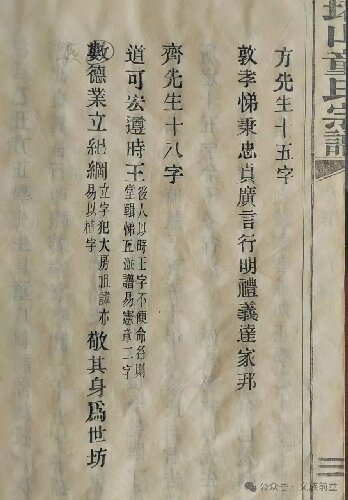 山童氏宗譜
方先生十五字
敦孝悌秉忠貞廣言行明禮義達家邦
齊先生十八字
道可宏遵時王
後人以時王字不便命名則
堂輯悌五派譜易憲章二字
數德業立紀綱
立字犯大房祖諱亦
易以植字
敬其身為世坊
公众号